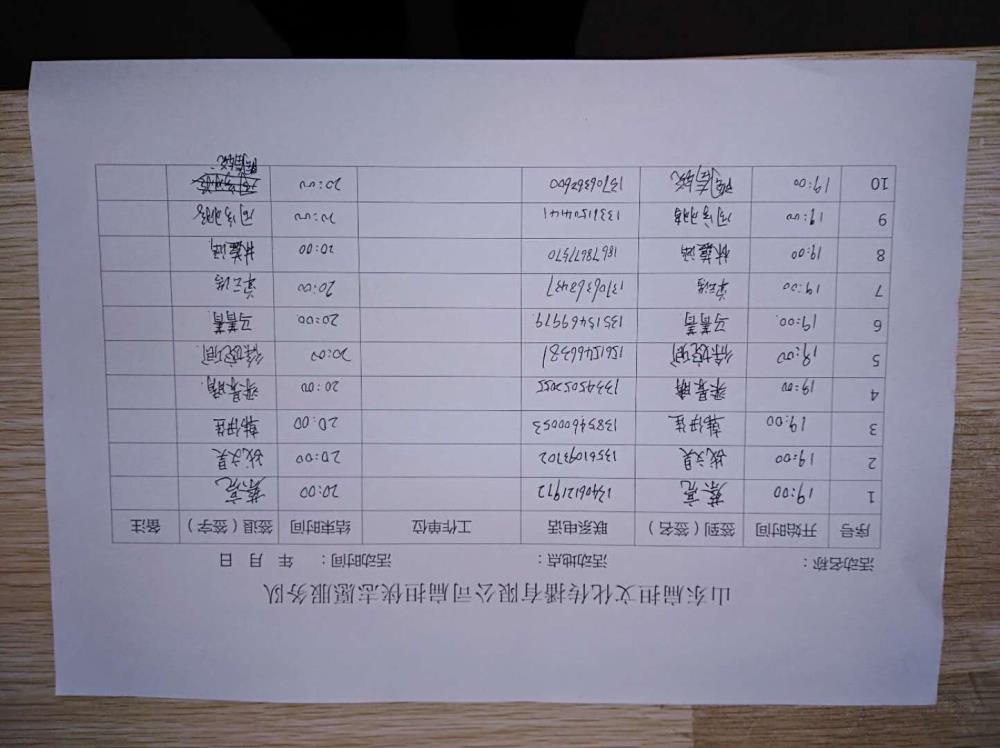 山东扁担文化传播有限公司扁担侠志愿服务队
活动名称： 活动地点： 活动时间： 年 月 日
序号 开始时间 签到（签名） 联系电话 工作单位 结束时间 签退（签字） 备注
1 19:00 蔡亮 13406121972 20:00 蔡亮
2 19:00 战文昊 13561093702 20:00 战文昊
3 19:00 韩伊佳 13854600053 20:00 韩伊佳
4 19:00 梁景晴 13345052055 20:00 梁景晴
5 19:00 15615466381 20:00
6 19:00. 马菁菁 13515469979. 20:00. 马菁菁
7 19:00 13706368437 20:00
8 19:00 林蕴涵 18678677570 20:00 林蕴涵
9 19:00 13361504441 20:00
10 19:00 13706368600 20:00